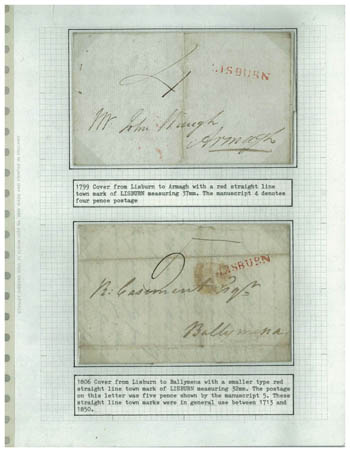 4
LISBURN
Mr John Waugh
Armagh
1799 Cover from Lisburn to Armagh with a red straight line
town mark of LISBURN measuring 37mm. The manuscript 4 denotes
four pence postage
LISBURN
R: Casement Esqr
Ballymena
1806 Cover from Lisburn to Ballymena with a smaller type red
straight line town mark of LISBURN measuring 32mm. The postage
on this letter was five pence shown by the manuscript 5. These
straight line town marks were in general use between 1713 and
1850.